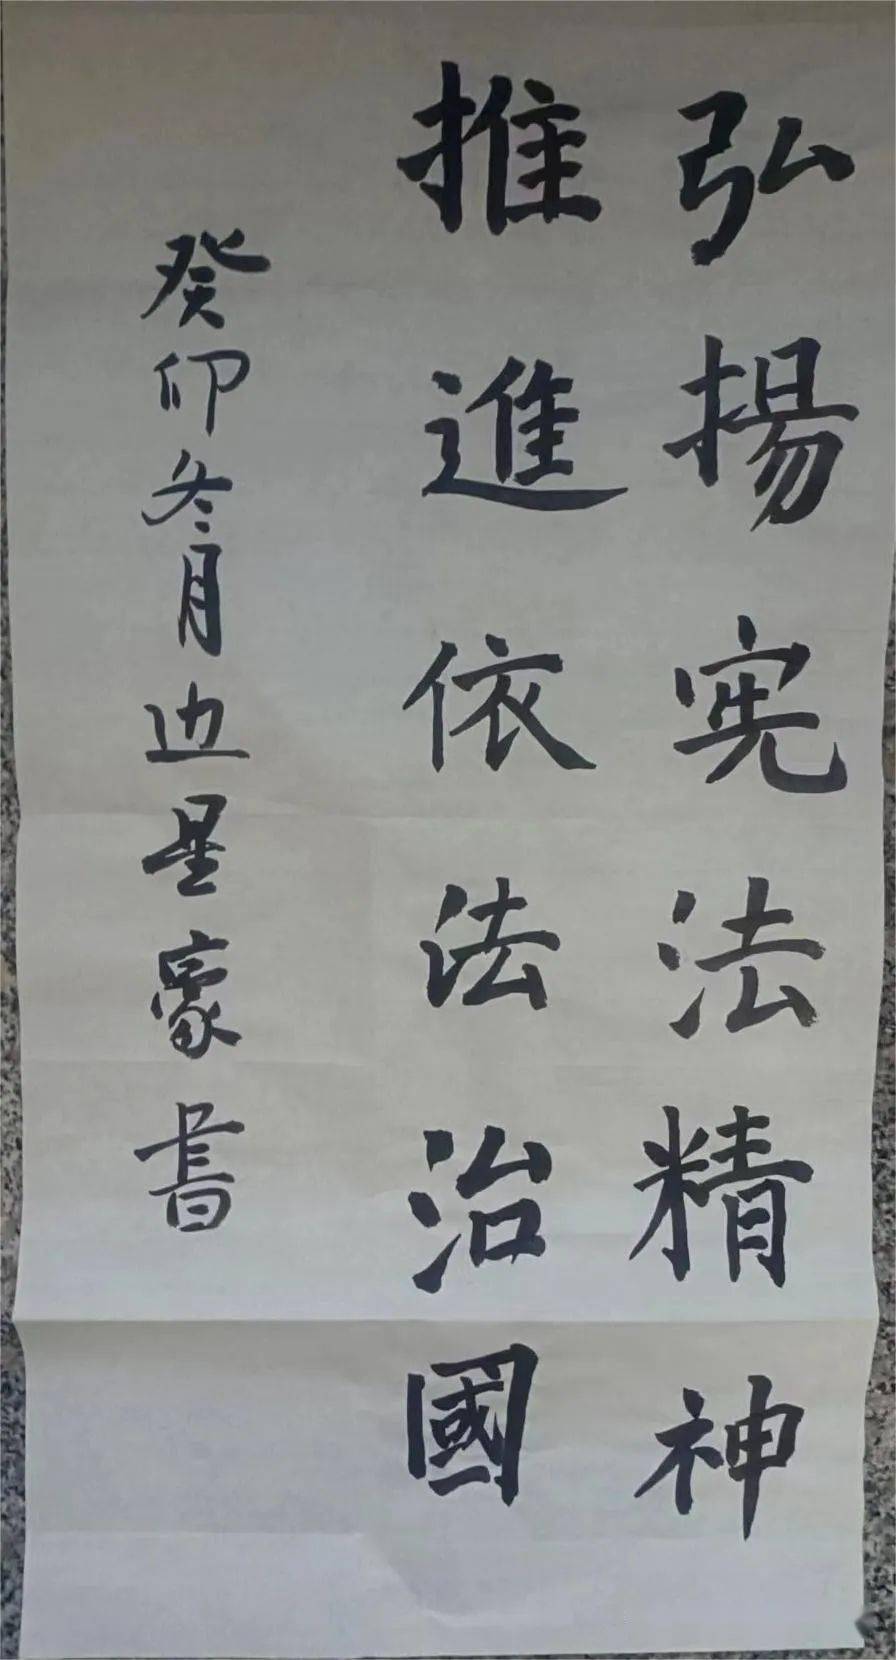 弘揚宪法精神
推進依法治國
癸卯冬月边星豪書